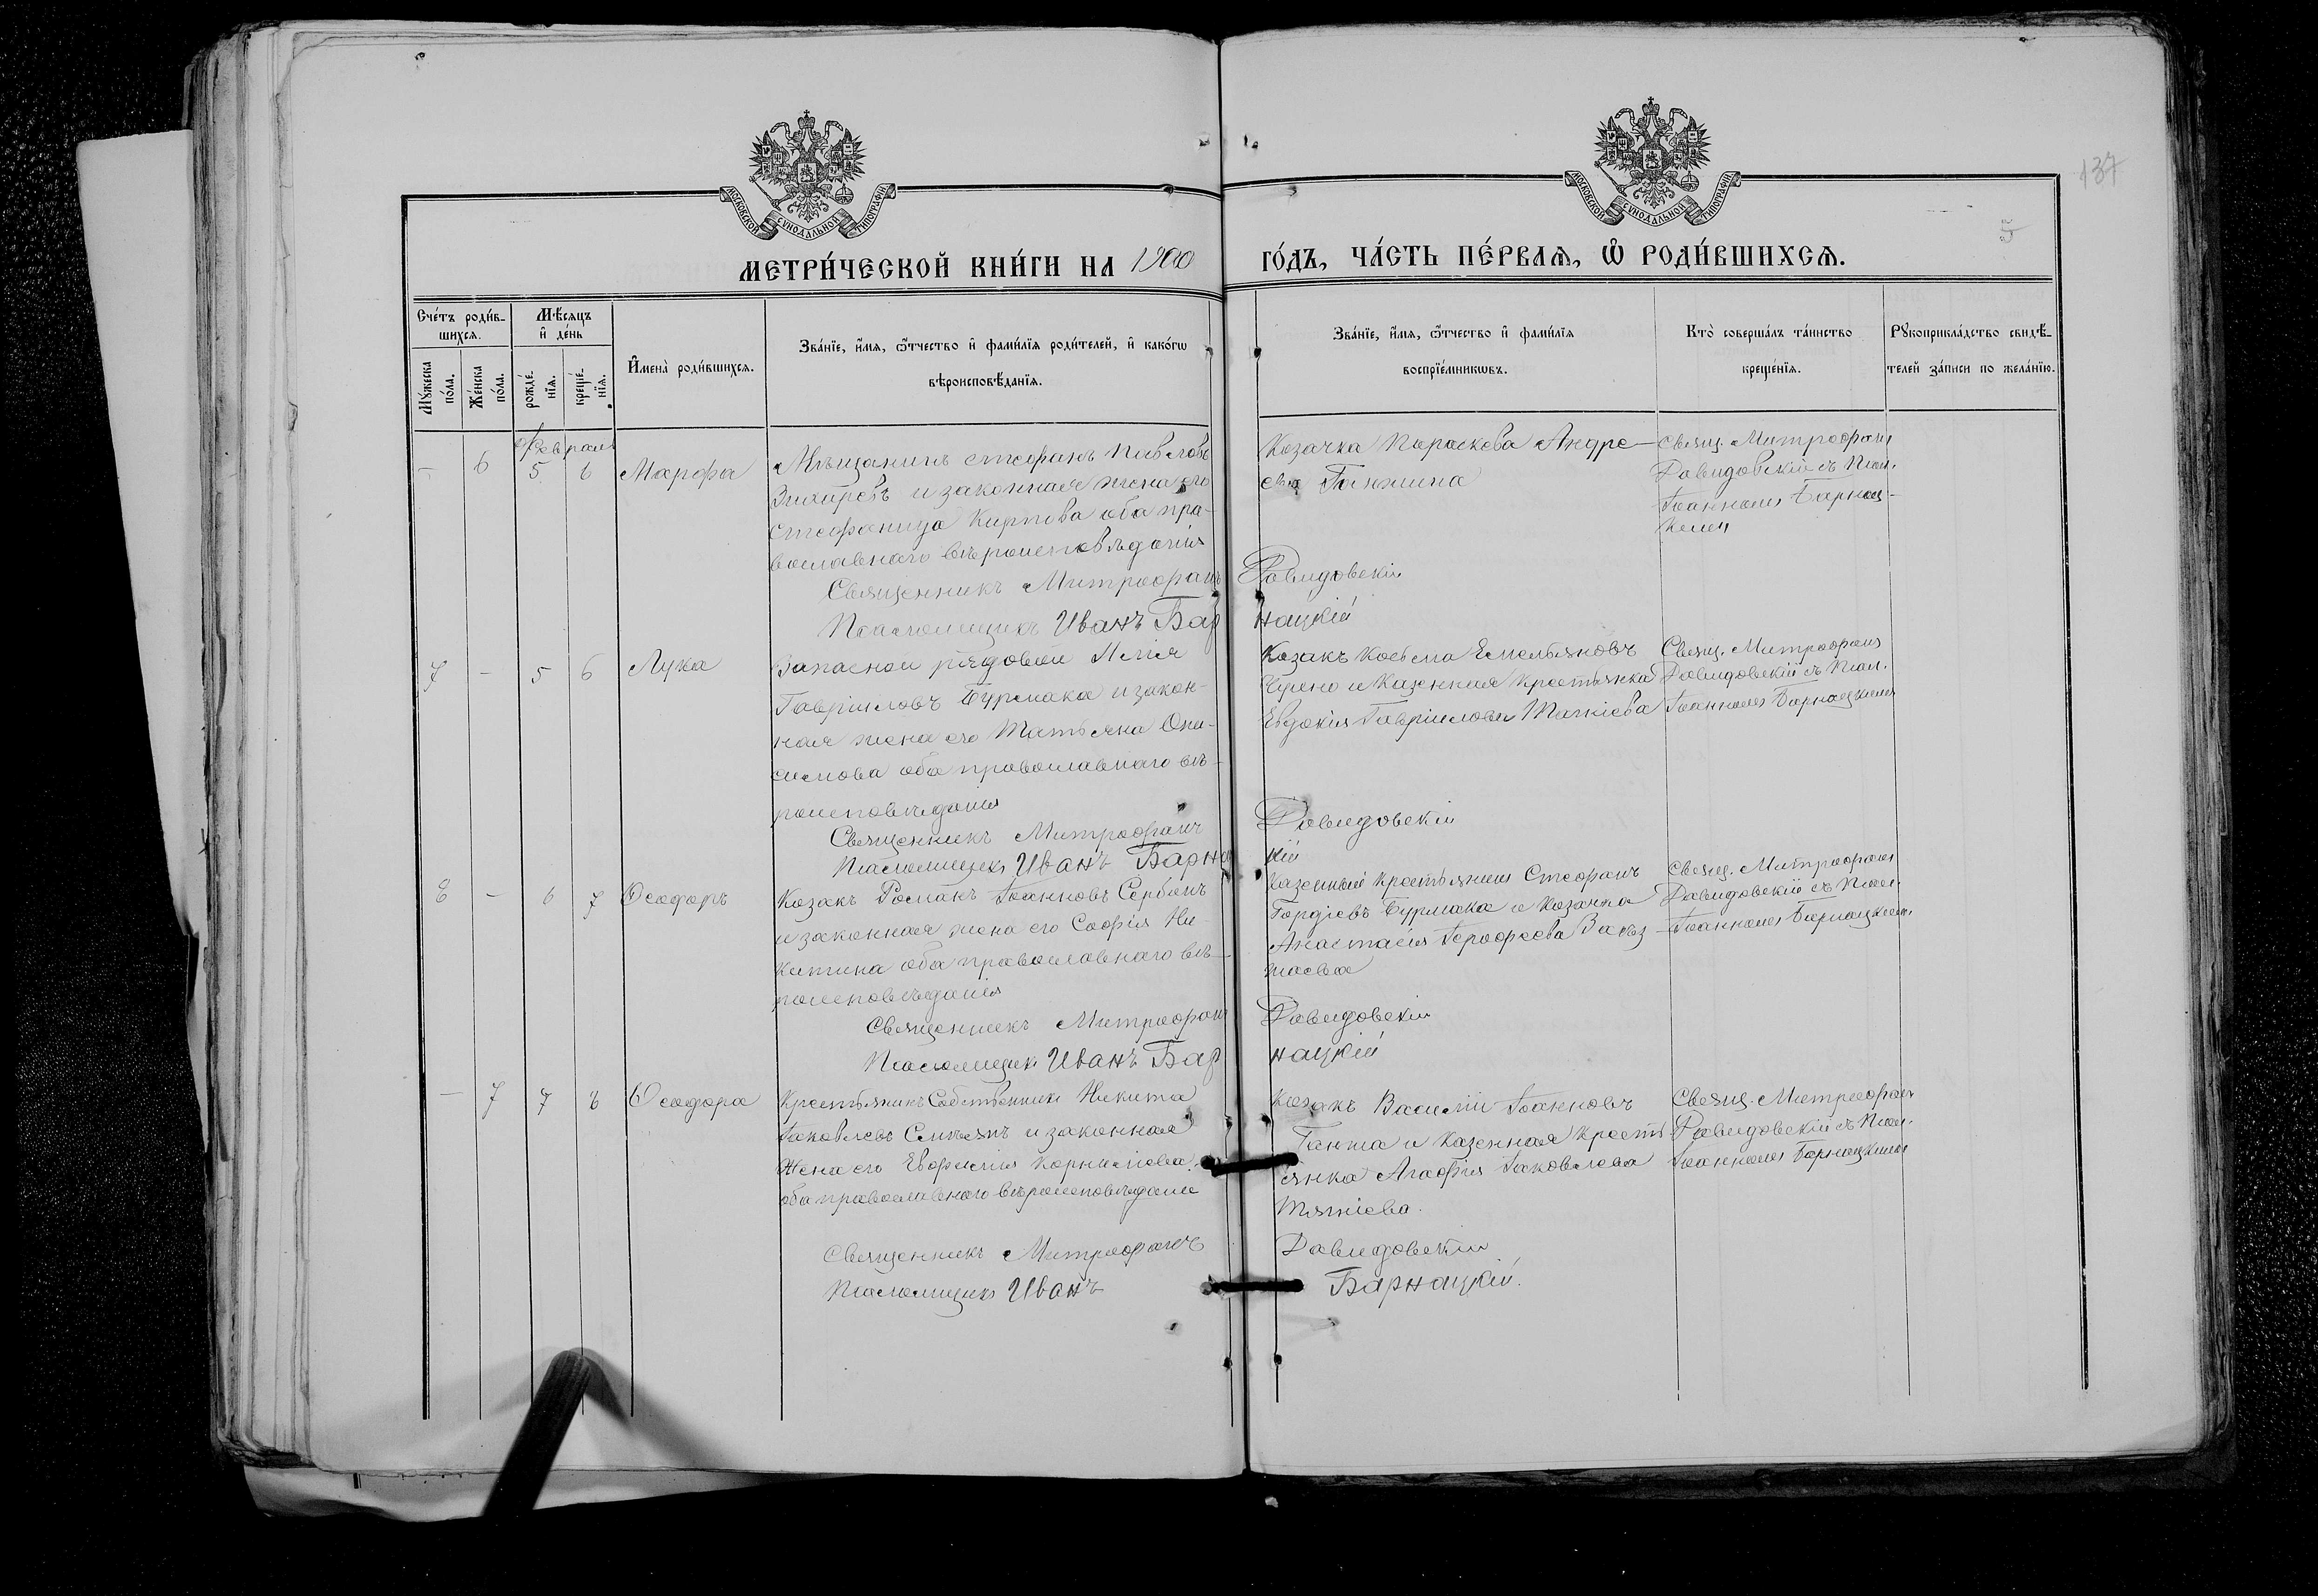 МОСКОВСКОЙ СУНОДАЛЬНОЙ ТИПОГРАФІИ
МОСКОВСКОЙ СУНОДАЛЬНОЙ ТИПОГРАФІИ
137
МЕТРИ́ЧЕСКОЙ КНИ́ГИ НА 1900
ГО́ДЪ, ЧА́СТЬ ПЕ́РВАѦ, Ѽ РОДИ́ВШИХСѦ.
Сче́тъ роди́в-
шихсѧ.
Мѣ́сѧцъ
и҆ де́нь
Мꙋ́жеска по́ла.
Же́нска по́ла.
рожде́-
нїѧ.
креще́-
нїѧ.
И҆мена̀ роди́вшихсѧ.
Зва́нїе, и҆́мѧ, ѻ҆́тчество и҆ фами́лїѧ роди́телей, и҆ како́гѡ
вѣроисповѣ́данїѧ.
Зва́нїе, и҆́мѧ, ѻ҆́тчество и҆ фами́лїѧ
воспрїе́мникѡвъ.
Кто̀ соверша́лъ та́инство
креще́нїѧ.
Рꙋкоприкла́дство свидѣ́-
телей за́писи по жела́нїю.
Февраль
- 6 5 6 Марфа
Мѣщанинъ Стефанъ Павловъ
и законная жена его
Стефанида Карпова оба пра-
вославнаго вѣроисповѣданія
Козачка Параскева Андре-
ева Ганжина
Свящ. Митрофанъ
Давидовскій съ Псал.
Іоанномъ Барнац-
кимъ
Священникъ Митрофанъ Давидовскій
Псаломщикъ Иванъ Барнацкій
7 - 5 6 Лука
Запасной рядовой Илія
Гавріиловъ Бурмака и закон-
ная жена его Татьяна Они-
симова оба православнаго вѣ-
роисповѣданія
Козакъ Косьма Емельяновъ
и Казенная крестьянка
Евдокія Гавріилова
Свящ. Митрофанъ
Давидовскій съ Псал.
Іоанномъ Барнацкимъ
Священникъ Митрофанъ Давидовскій
Псаломщикъ Иванъ Барнацкій
8 - 6 7 Ѳеодоръ
Козакъ Романъ Іоанновъ Сербинъ
и законная жена его Софія Ни-
китина оба православнаго вѣ-
роисповѣданія
Казенный крестьянинъ Стефанъ
Гордіевъ Бурмака и Козачка
Анастасія Іерофеева
Свящ. Митрофанъ
Давидовскій съ Псал.
Іоанномъ Барнацкимъ
Священникъ Митрофанъ Давидовскій
Псаломщикъ Иванъ Барнацкій
- 7 7 8 Ѳеодора
Крестьянинъ Собственникъ Никита
Іаковлевъ и законная
жена его Евфимія Корниліева
оба православнаго вѣроисповѣданія
Козакъ Василій Іоанновъ
Ганжа и Казенная Кресть-
янка Агафія Іаковлева
Тягніева.
Свящ. Митрофанъ
Давидовскій съ Псал.
Іоанномъ Барнацкимъ
Священникъ Митрофанъ Давидовскій
Псаломщикъ Иванъ Барнацкій.